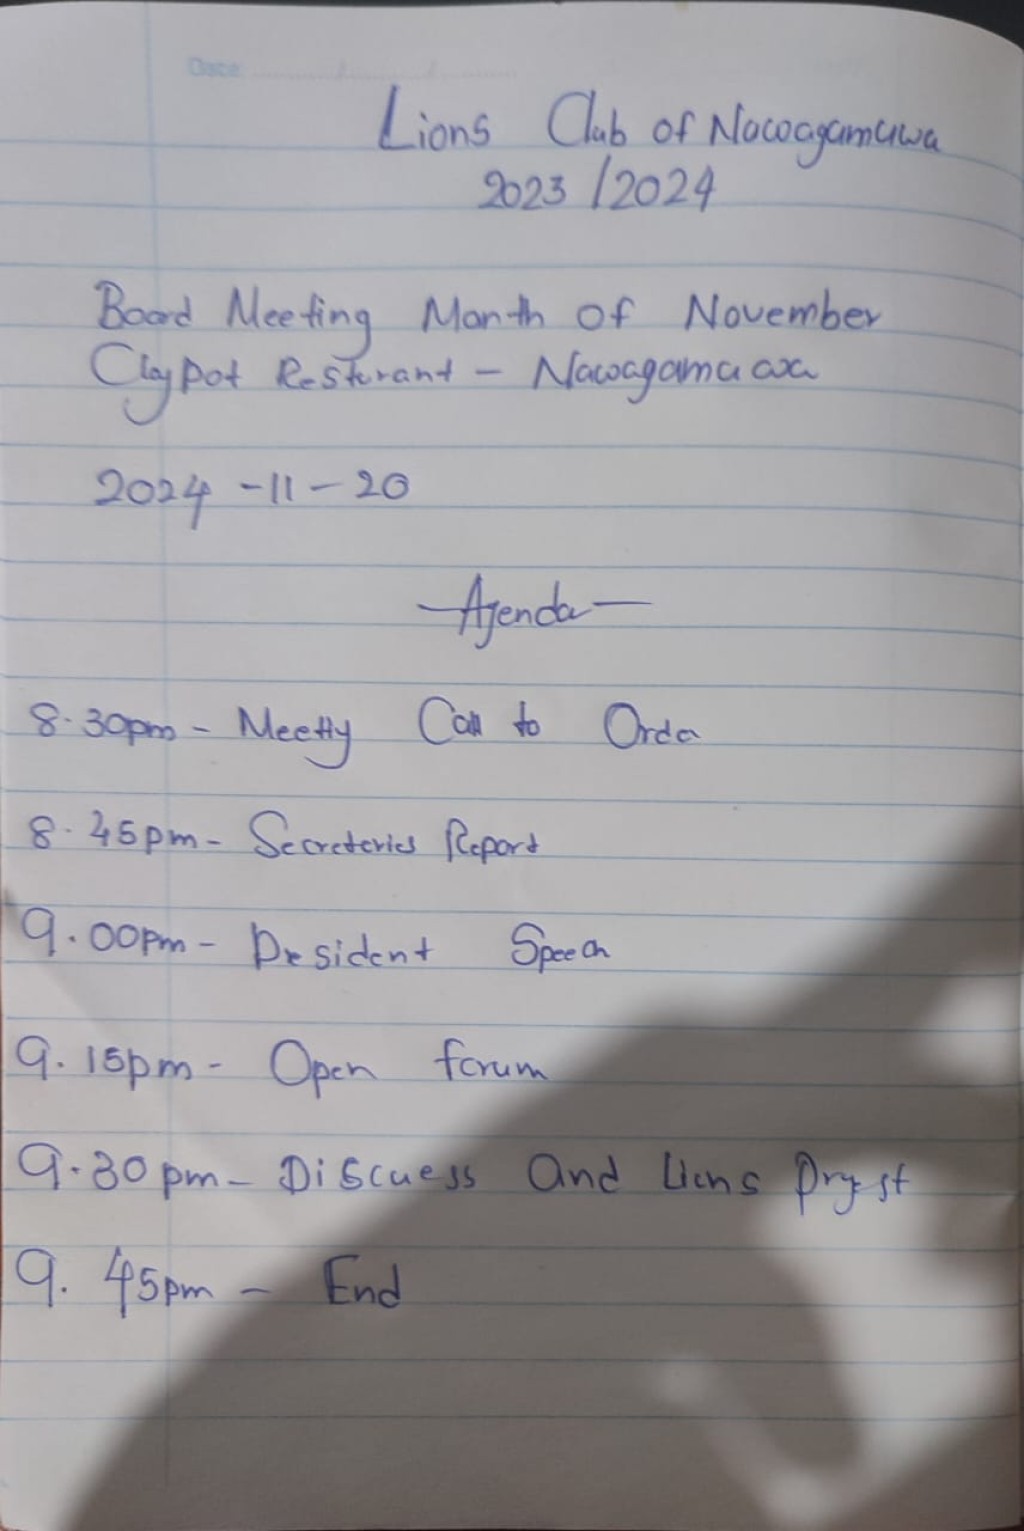 Date
Lions Club of Nawagamuwa
2023 / 2024
Board Meeting Month of November
Claypot Resturant - Nawagamuwa
2024 - 11 - 20
- Agenda -
8.30pm - Meeting Call to Order
8.45pm - Secreteries Report
9.00pm - President Speech
9.15pm - Open forum
9.30pm - Discuess and Lions
9.45pm - End